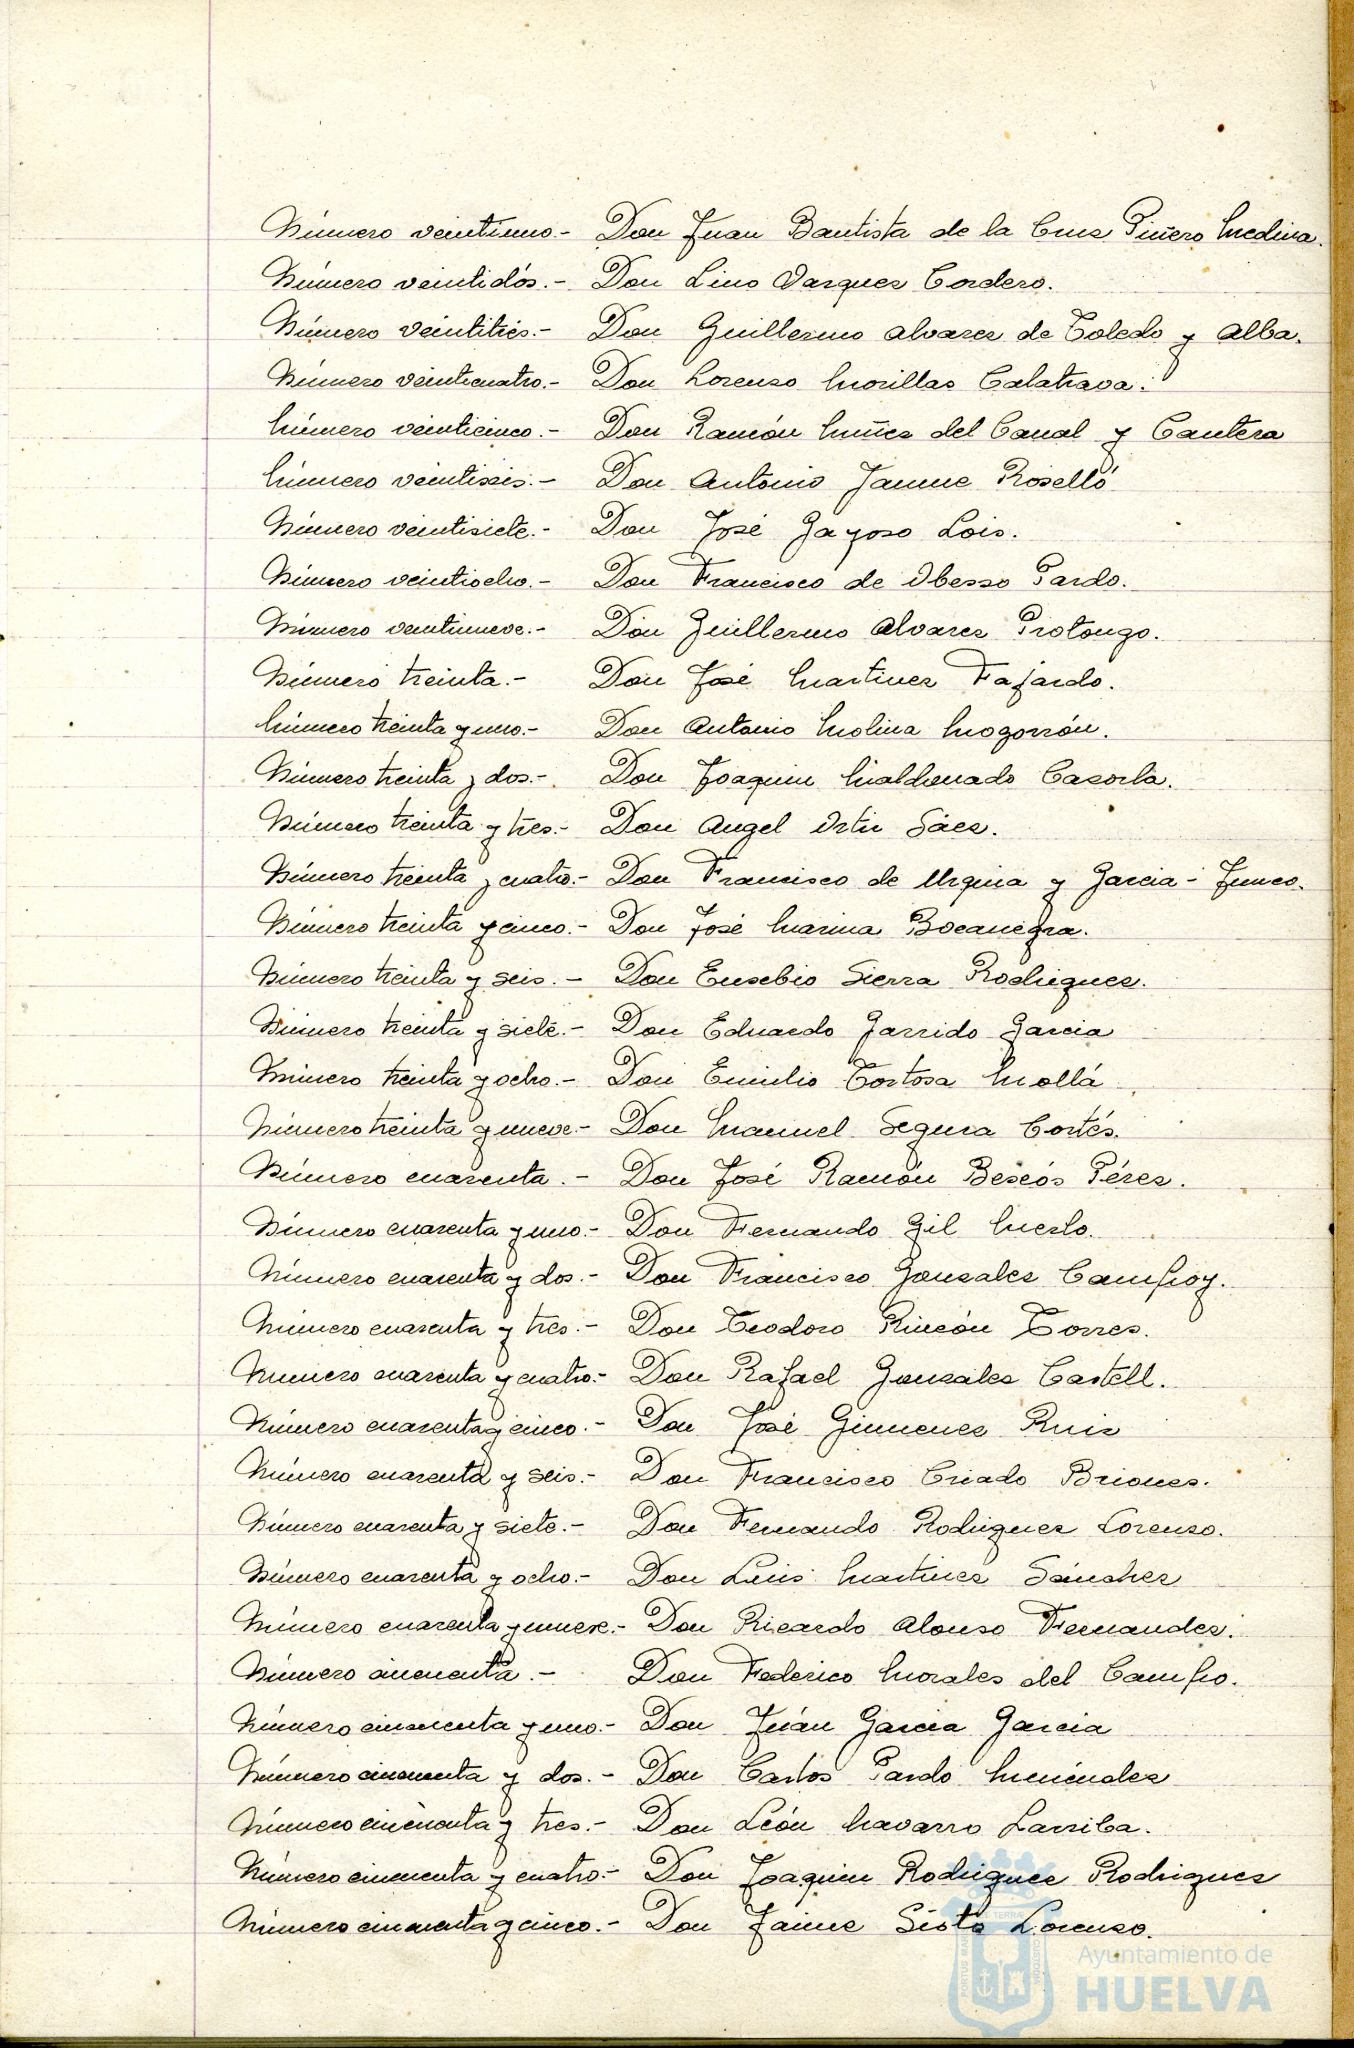 Número veintiuno.- Don Juan Bautista de la Cruz Piñero Medina.
Número veintidós.- Don Lino Vazquez Cordero.
Número veintitrés.- Don Guillermo Alvarez de Toledo y Alba.
Número veinticuatro.- Don Lorenzo Morillas Calatrava.
Número veinticinco.- Don Ramón Núñez del Canal y Cantera
Número veintiseis.- Don Antonio Jaume Roselló
Número veintisiete.- Don José Gayoso Lois.
Número veintiocho.- Don Francisco de Obesso Pardo.
Número veintinueve.- Don Guillermo Alvarez Prolongo.
Número treinta.- Don José Martinez Fajardo.
Número treinta y uno.- Don Antonio Molina Mogorrón.
Número treinta y dos.- Don Joaquin Maldonado Cazorla.
Número treinta y tres.- Don Angel Ortiz Sáez.
Número treinta y cuatro.- Don Francisco de Urquia y Garcia-Junco.
Número treinta y cinco.- Don José Marina Bocanegra.
Número treinta y seis.- Don Eusebio Sierra Rodriguez.
Número treinta y siete.- Don Eduardo Garrido Garcia
Número treinta y ocho.- Don Emilio Tortosa Mollá
Número treinta y nueve.- Don Manuel Segura Cortés.
Número cuarenta.- Don José Ramón Bescós Pérez.
Número cuarenta y uno.- Don Fernando Gil Merlo.
Número cuarenta y dos.- Don Francisco Gonzalez Campoy.
Número cuarenta y tres.- Don Teodoro Rincón Torres.
Número cuarenta y cuatro.- Don Rafael Gonzalez Castell.
Número cuarenta y cinco.- Don José Gimenez Ruiz
Número cuarenta y seis.- Don Francisco Criado Briones.
Número cuarenta y siete.- Don Fernando Rodriguez Lorenzo.
Número cuarenta y ocho.- Don Luis Martinez Sánchez
Número cuarenta y nueve.- Don Ricardo Alonso Fernandez.
Número cincuenta.- Don Federico Morales del Campo.
Número cincuenta y uno.- Don Juán Garcia Garcia
Número cincuenta y dos.- Don Carlos Pardo Menéndez
Número cincuenta y tres.- Don León Navarro Larriba.
Número cincuenta y cuatro.- Don Joaquin Rodriguez Rodriguez
Número cincuenta y cinco.- Don Jaime Sixto Lorenzo.
Ayuntamiento de
HUELVA